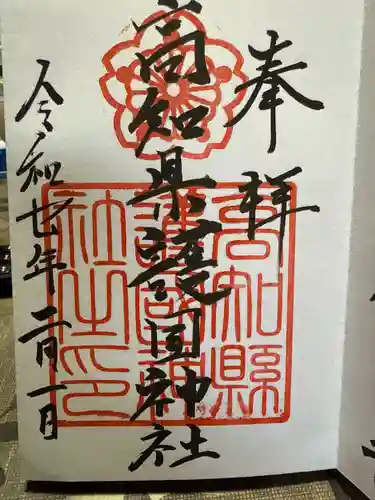 奉拝
高知県護国神社
令和七年二月一日
高知縣護國神社之印